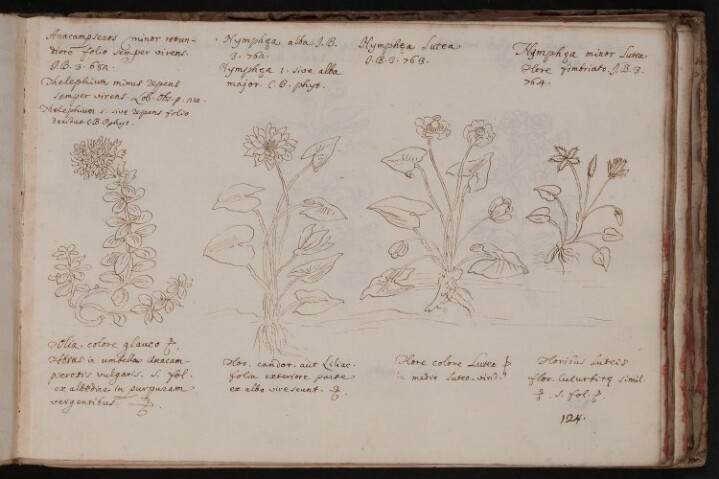 Anacampseros minor rotun-
diore folio semper virens.
J.B. 3. 682.
Thelephium minus repens
semper virens. Lob. Obs. p.
Thelephium s. sive repens folio
deciduo C.B. phyt.
Nymphęa alba J.B.
3. 762.
Nymphęa 1. sive alba
major. C.B. phyt.
Nymphęa Lutea
J.B. 3. 763.
Nymphęa minor Lutea
flore fimbriato. J.B. 3.
764.
Folia colore glauco
flores in umbellam anacam-
perotis vulgaris. s. fol.
ex albedine in purpuram
vergentibus.
Flor. candor. aut Liliac.
folia exteriore parte
ex albo virescunt.
Flore colore Luteo
in medio luteo-virid.
Floribus Luteis
flor. cucurbitę simil.
s. fol.
124.